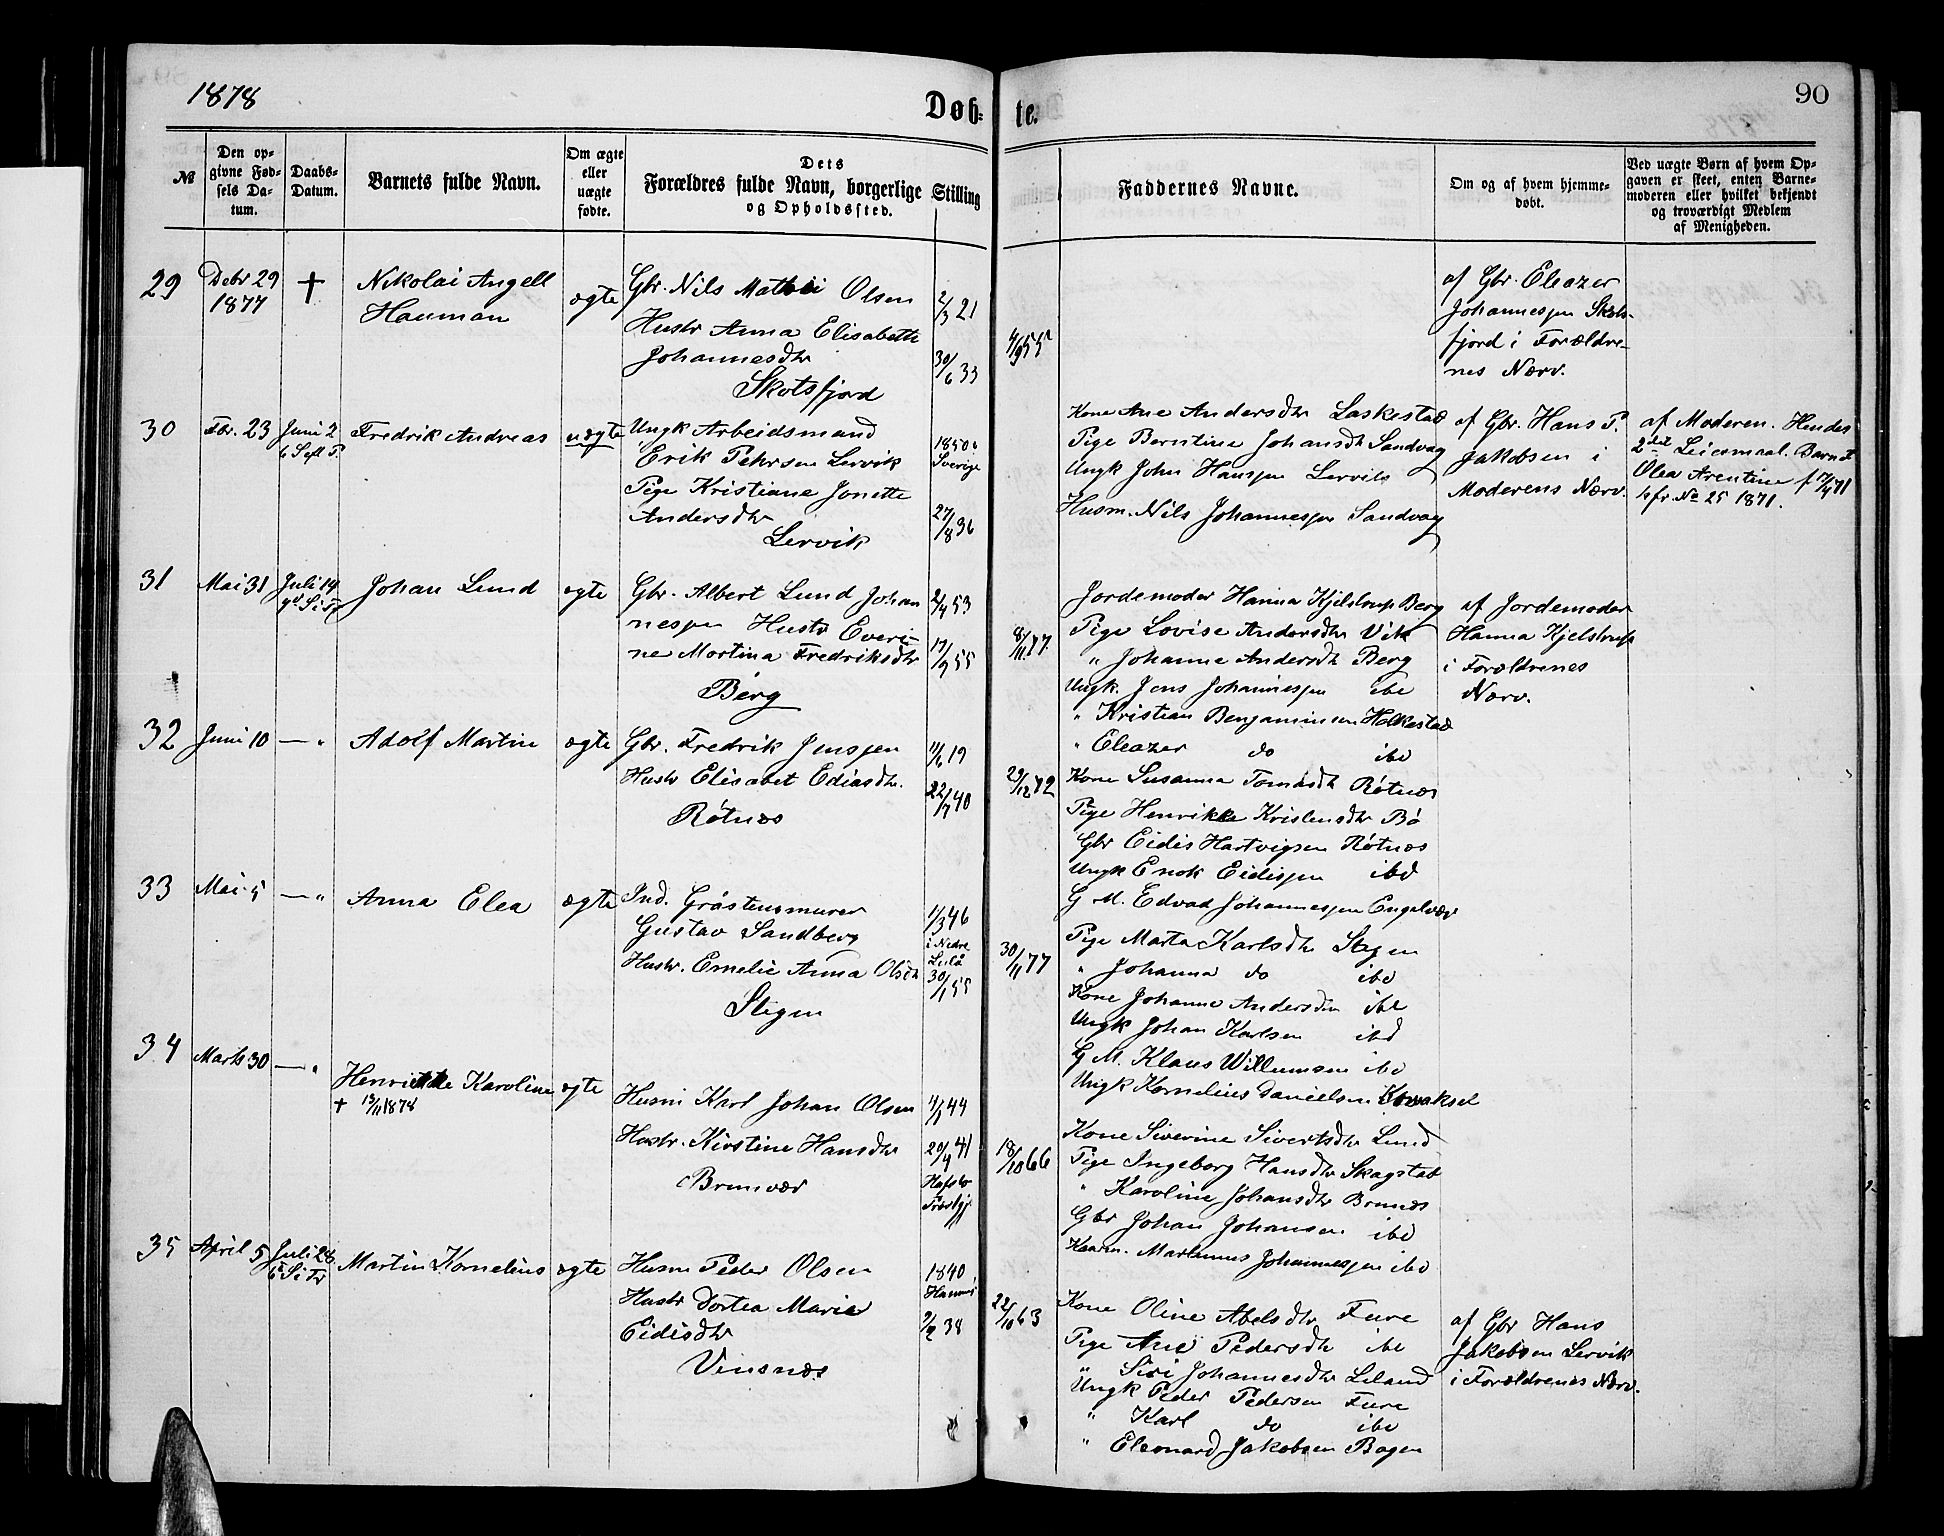 1878
Døb-
te.
90
№
Den op-
givne Fød-
sels Da-
tum.
Daabs-
Datum.
Barnets fulde Navn.
Om ægte
eller
uægte
fødte.
Dets
Forældres fulde Navn, borgerlige Stilling
og Opholdssted.
Faddernes Navne.
Om og af hvem hjemme-
døbt.
Ved uægte Børn af hvem Op-
gaven er skeet, enten Barne-
moderen eller hvilket bekjendt
og troværdigt Medlem
af Menigheden.
29
Debr 29
1877
†
Nikolai Angell
Hauman
ægte
Gbr. Nils Mathi Olsen
Hustr Anna Elisabeth
Johannesdtr
Skotsfjord
2/3 21
30/6 33
4/9 55
af Gbr. Eleazer
Johannessen Skots-
fjord i Forældre-
nes Nærv.
30
Febr. 23
Juni 2
6 S eft P.
Fredrik Andreas
uægte
Ungk Arbeidsmand
Erik Pehrsen Lervik
Pige Kristiane Jonette
Andersdtr
Lervik
1850
Sverige
27/8 36
Kone Ane Andersdtr Laskestad
Pige Berntine Johansdtr Sandvag
Ungk John Hanssen Lervik
Husm. Nils Johannessen Sandvag
af Gbr. Hans P.
Jakobsen i
Moderens Nærv.
af Moderen. Hendes
2det Leiermaal. Barn 1
Olea Arentine f 17/4 71
hfr. No 25 1871.
31
Mai 31
Juli 14
Johan Lund
ægte
Gbr. Albert Lund Johan
nessen Hustr Everi-
ne Martina Fredriksdtr
Berg
2/4 53
17/9 55
8/11 77.
Jordemoder Hanna Kjelstrup Berg
Pige Lovise Andersdtr Vik
" Johanne Andersdtr Berg
Ungk. Jens Johannessen ibd
" Kristian Benjaminsen Helkestad
" Eleazer do ibd
af Jordemoder
Hanna Kjelstrup
i Forældrenes
Nærv.
32
Juni 10
— "
Adolf Martin
ægte
Gbr. Fredrik Jenssen
Hustr Elisabet Ediasdtr.
Røtnes
11/6 19
22/7 40
29/12 72
Kone Susanna Tomasdtr Røtnes
Pige Henrikke Kristensdtr Bø
Gbr Eidis Hartvigsen Røtnes
Ungk Enok Eidissen ibd
G M. Edvad Johannessen Engelvær
33
Mai 5
— "
Anna Elea
ægte
Ind. Gråstensmurer
Gustav Sandberg
Hustr. Emelie Anna Olsdtr
Stegen
1/3 46
i Nedre
Luleå
30/1 55
30/11 77
Pige Marta Karlsdtr Stegen
" Johanna do ibd
Kone Johanne Andersdtr ibd
Ungk Johan Karlsen ibd
G M. Klaus Willumsen ibd
Ungk Kornelius Danielsen
34
Marts 30
— "
Henriette Karoline
† 13/11 1878
ægte
Husm Karl Johan Olsen
Hustr. Kirstine Hansdtr
Brunvær
4/1 44
20/4 41
18/10 66
Kone Siverine Sivertsdtr Lund
Pige Ingeborg Hansdtr Skagstad
" Karoline Johansdtr Brunvær
Gbr Johan Johansen ibd
Kaarm. Martinus Johannessen ibd
35
April 5
Juli 28
Martin Kornelius
ægte
Husm Peder Olsen
Hustr Dortea Marie
Eidisdtr
Vinsnes
1840
Hamarø
2/2 38
22/10 63
Kone Oline Abelsdtr Fure
Pige Ane Pedersdtr ibd
" Siri Johannesdtr Leland
Ungk Peder Pedersen Fure
" Karl do ibd
" Eleonard Jakobsen Bogen
af Gbr Hans
Jakobsen Lervik
i Forældrenes Nærv.